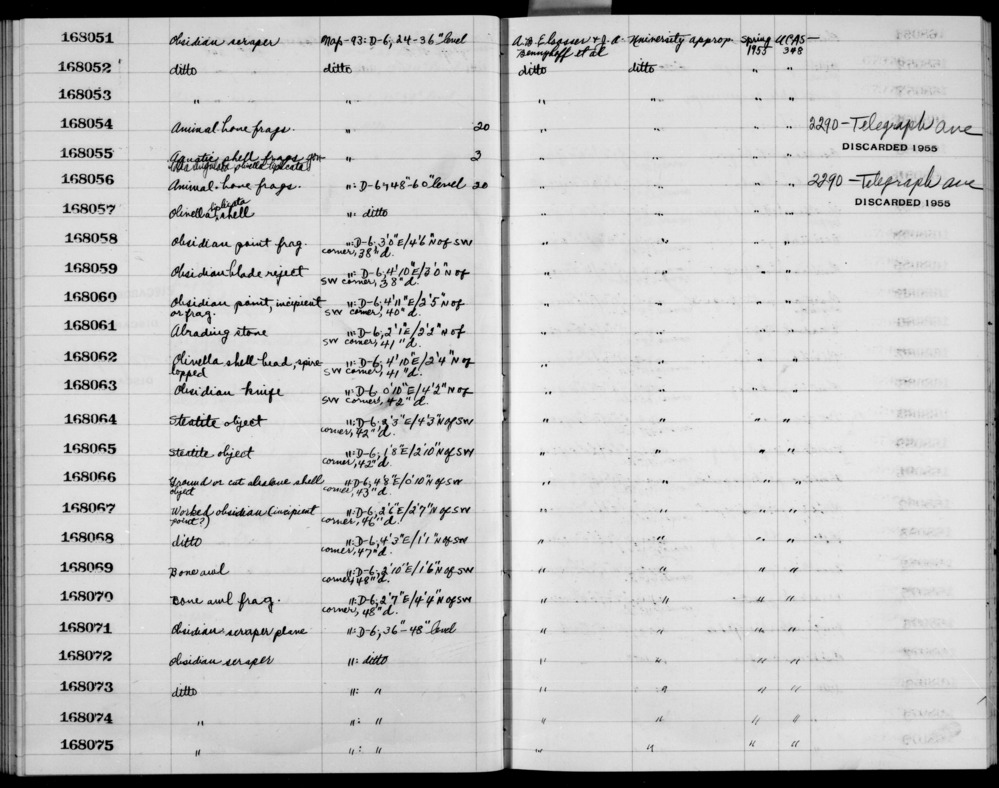 168051 Obsidian scraper Nap-93: D-6, 24-36" level A.B. Elsasser + J.A. University approp. Spring UCAS-
Bennyhoff et al 1955 348
168052 ditto ditto ditto ditto " "
168053 " " " " " "
168054 Animal bone frags. " 20 " " " " 2290-Telegraph ave
DISCARDED 1955
168055 Aquatic shell frags " 3 " " " "
168056 Animal bone frags. ": D-6, 48"-60" level 20 " " " " 2290-Telegraph ave
DISCARDED 1955
168057 Olivella biplicata shell ": ditto " " " "
168058 Obsidian point frag. ": D-6, 3'0"E/4'6"N of SW " " " "
corner, 38"d.
168059 Obsidian blade reject ": D-6, 4'10"E/3'0"N of " " " "
SW corner, 38"d.
168060 Obsidian point, incipient ": D-6, 4'11"E/2'5"N of " " " "
or frag. SW corner, 40"d.
168061 Abrading stone ": D-6, 2'1"E/2'2"N of " " " "
SW corner, 41"d.
168062 Olivella shell bead, spire ": D-6, 4'10"E/2'4"N of " " " "
lopped SW corner, 41"d.
168063 Obsidian knife ": D-6, 0'10"E/4'2"N of " " " "
SW corner, 42"d.
168064 Steatite object ": D-6, 2'3"E/4'3"N of SW " " " "
corner, 42"d.
168065 Steatite object ": D-6, 1'8"E/2'10"N of SW " " " "
corner, 42"d.
168066 Ground or cut abalone shell ": D-6, 4'8"E/0'10"N of SW " " " "
object corner, 43"d.
168067 Worked obsidian (incipient ": D-6, 2'6"E/2'7"N of SW " " " "
point?) corner, 46"d.
168068 ditto ": D-6, 4'3"E/1'1"N of SW " " " "
corner, 47"d.
168069 Bone awl ": D-6, 2'10"E/1'6"N of SW " " " "
corner, 48"d.
168070 Bone awl frag. ": D-6, 2'7"E/4'4"N of SW " " " "
corner, 48"d.
168071 Obsidian scraper plane ": D-6, 36"-48" level " " " "
168072 Obsidian scraper ": ditto " " " "
168073 ditto ": " " " " "
168074 " ": " " " " "
168075 " ": " " " " "